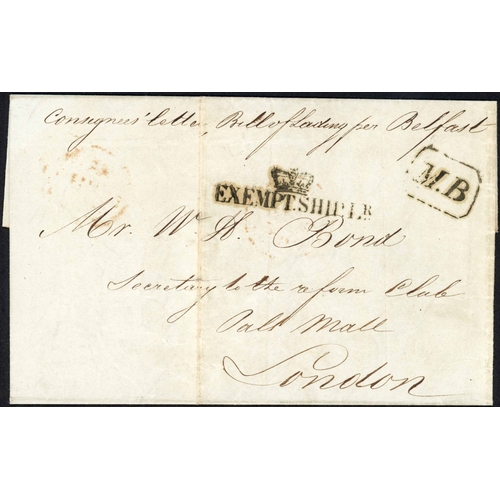 Consignees' letter, Bill of Lading per Belfast
M.B
EXEMPT.SHIP.LR
Mr. W. H. Bond
Secretary to the reform Club
Pall Mall
London